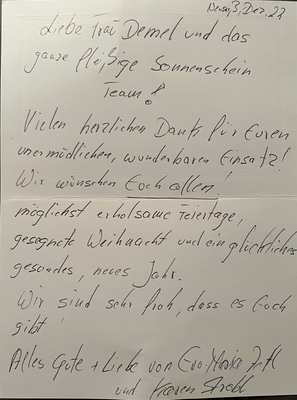 Dez. 22
Liebe Frau Demel und das
ganze fleißige Sonnenschein
Team!
Vielen herzlichen Dank für Euren
unermüdlichen, wunderbaren Einsatz!
Wir wünschen Euch allen!
möglichst erholsame Feiertage,
gesegnete Weihnacht und ein glückliches
gesundes, neues Jahr.
Wir sind sehr froh, dass es Euch
gibt!
Alles Gute + Liebe von Eva-Monika
und Karen